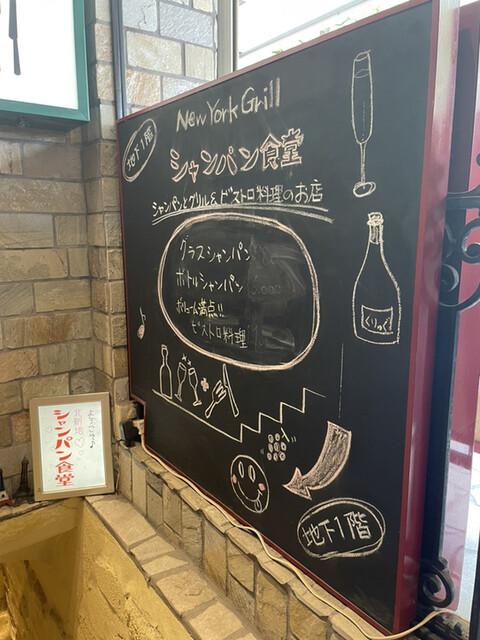 New York Grill
地下1階
シャンパン食堂
シャンパンとグリル&ビストロ料理のお店
グラスシャンパン
ボトルシャンパン
ボリューム満点!!
ビストロ料理
くりっく
地下1階
ようこそ♪
北新地
シャンパン食堂